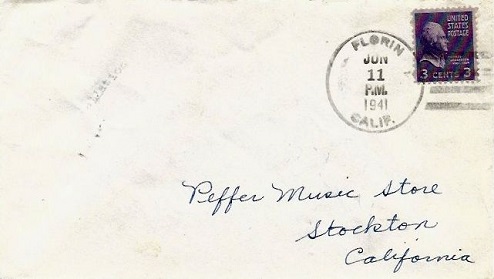 FLORIN
JUN
11
P.M.
1941
CALIF.
UNITED
STATES
POSTAGE
3 CENTS 3
Peffer Music Store
Stockton
California